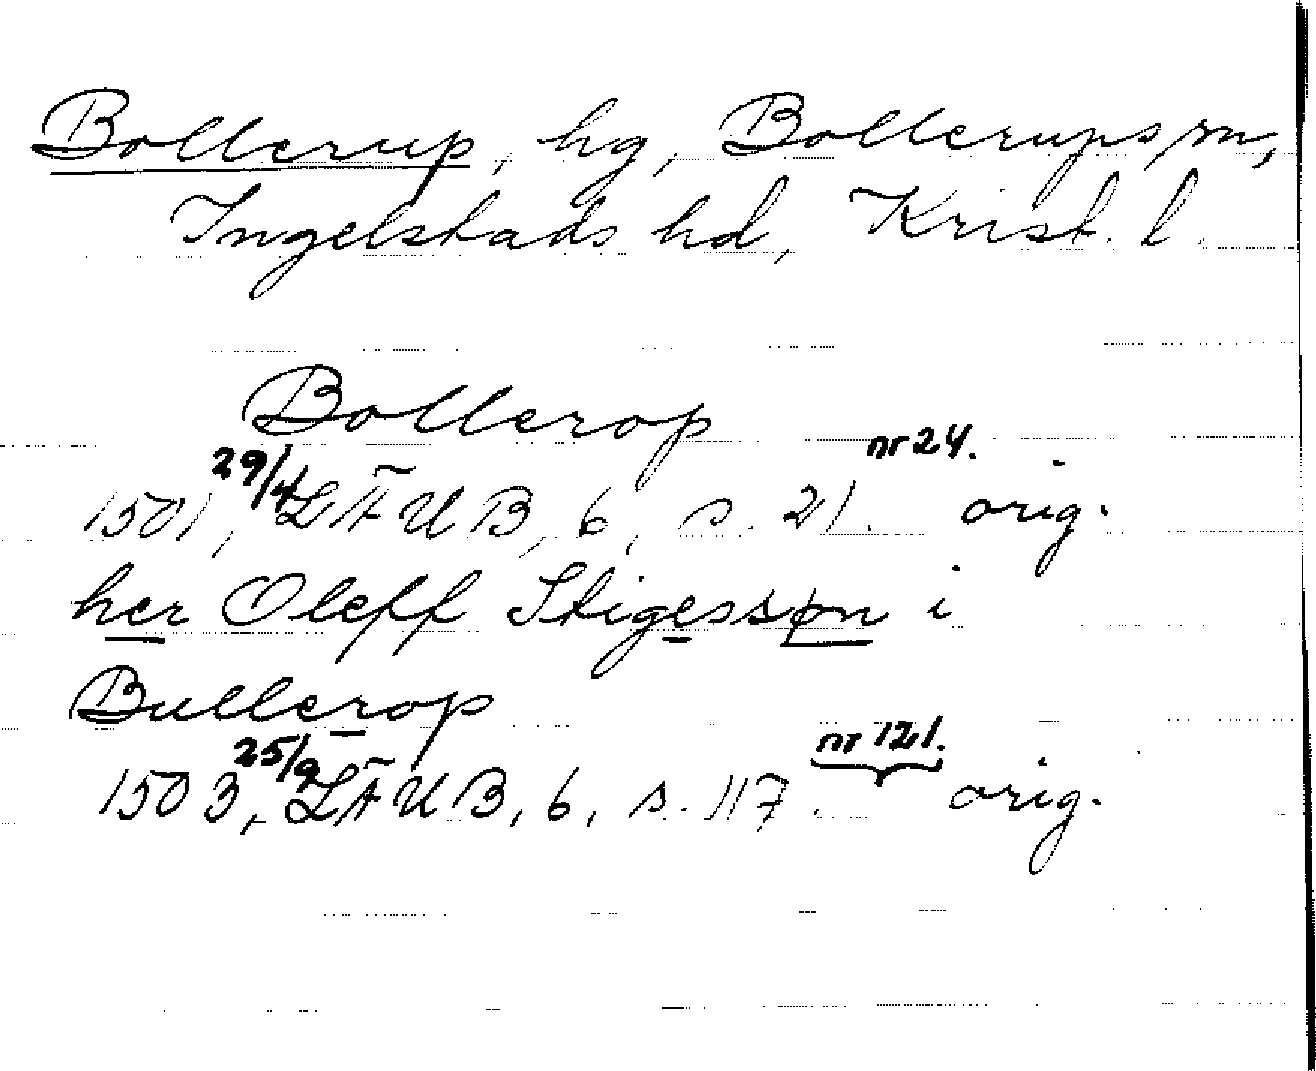 Bollerup, hg, Bollerups sn,
Ingelstads hd, Krist. l.
Bollerop
1501, 29/4 LÄUB, 6, s. 21. nr 24. orig.
her Oleff Stigessøn i
Bullerop
1503, 25/9 LÄUB, 6, s. 117. nr 121. orig.